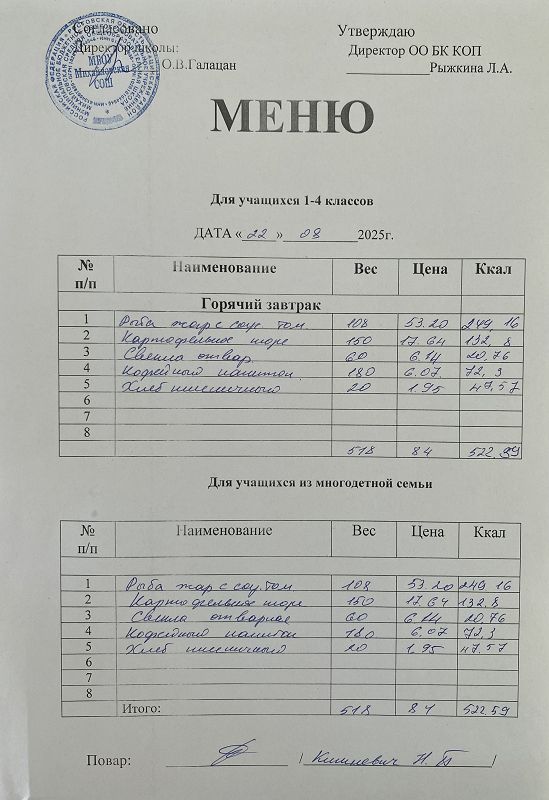 Согласовано Утверждаю
Директор школы: Директор ОО БК КОП
О.В.Галацан Рыжкина Л.А.
МБОУ
Михайловская
СОШ
МЕНЮ
Для учащихся 1-4 классов
ДАТА «22» 08 2025г.
№ п/п Наименование Вес Цена Ккал
Горячий завтрак
1 Рыба жар с соус том 108 53.20 249,16
2 Картофельное пюре 150 17.64 132,8
3 Свекла отвар. 60 6.14 20,76
4 Кофейный напиток 180 6.07 72,3
5 Хлеб пшеничный 20 1.95 47,57
6
7
8
518 84 522.59
Для учащихся из многодетной семьи
№ п/п Наименование Вес Цена Ккал
1 Рыба жар с соу.том 108 53.20 249 16
2 Картофельное пюре 150 17.64 132,8
3 Свекла отварная 60 6.14 20,76
4 Кофейный напиток 180 6,07 72,3
5 Хлеб пшеничный 20 1,95 47.57
6
7
8
Итого: 518 84 522.59
Повар: / /